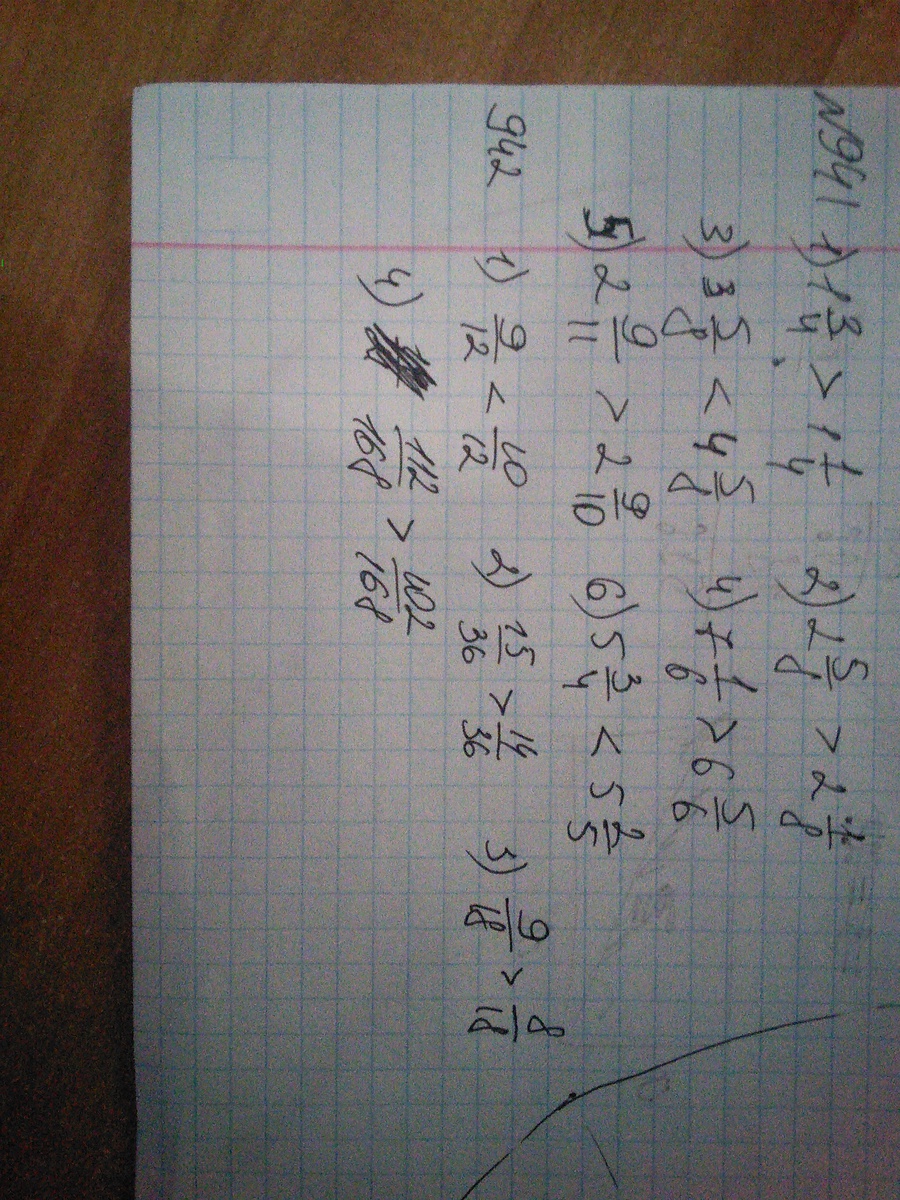 №941 1) 1 3/4 > 1 1/4 2) 2 5/8 > 2 1/8
3) 3 5/8 < 4 5/8 4) 7 1/6 > 6 5/6
5) 2 9/11 > 2 9/10 6) 5 3/4 < 5 2/5
942 1) 9/12 < 10/12 2) 15/36 > 14/36 3) 9/18 > 8/18
4) 112/168 > 102/168